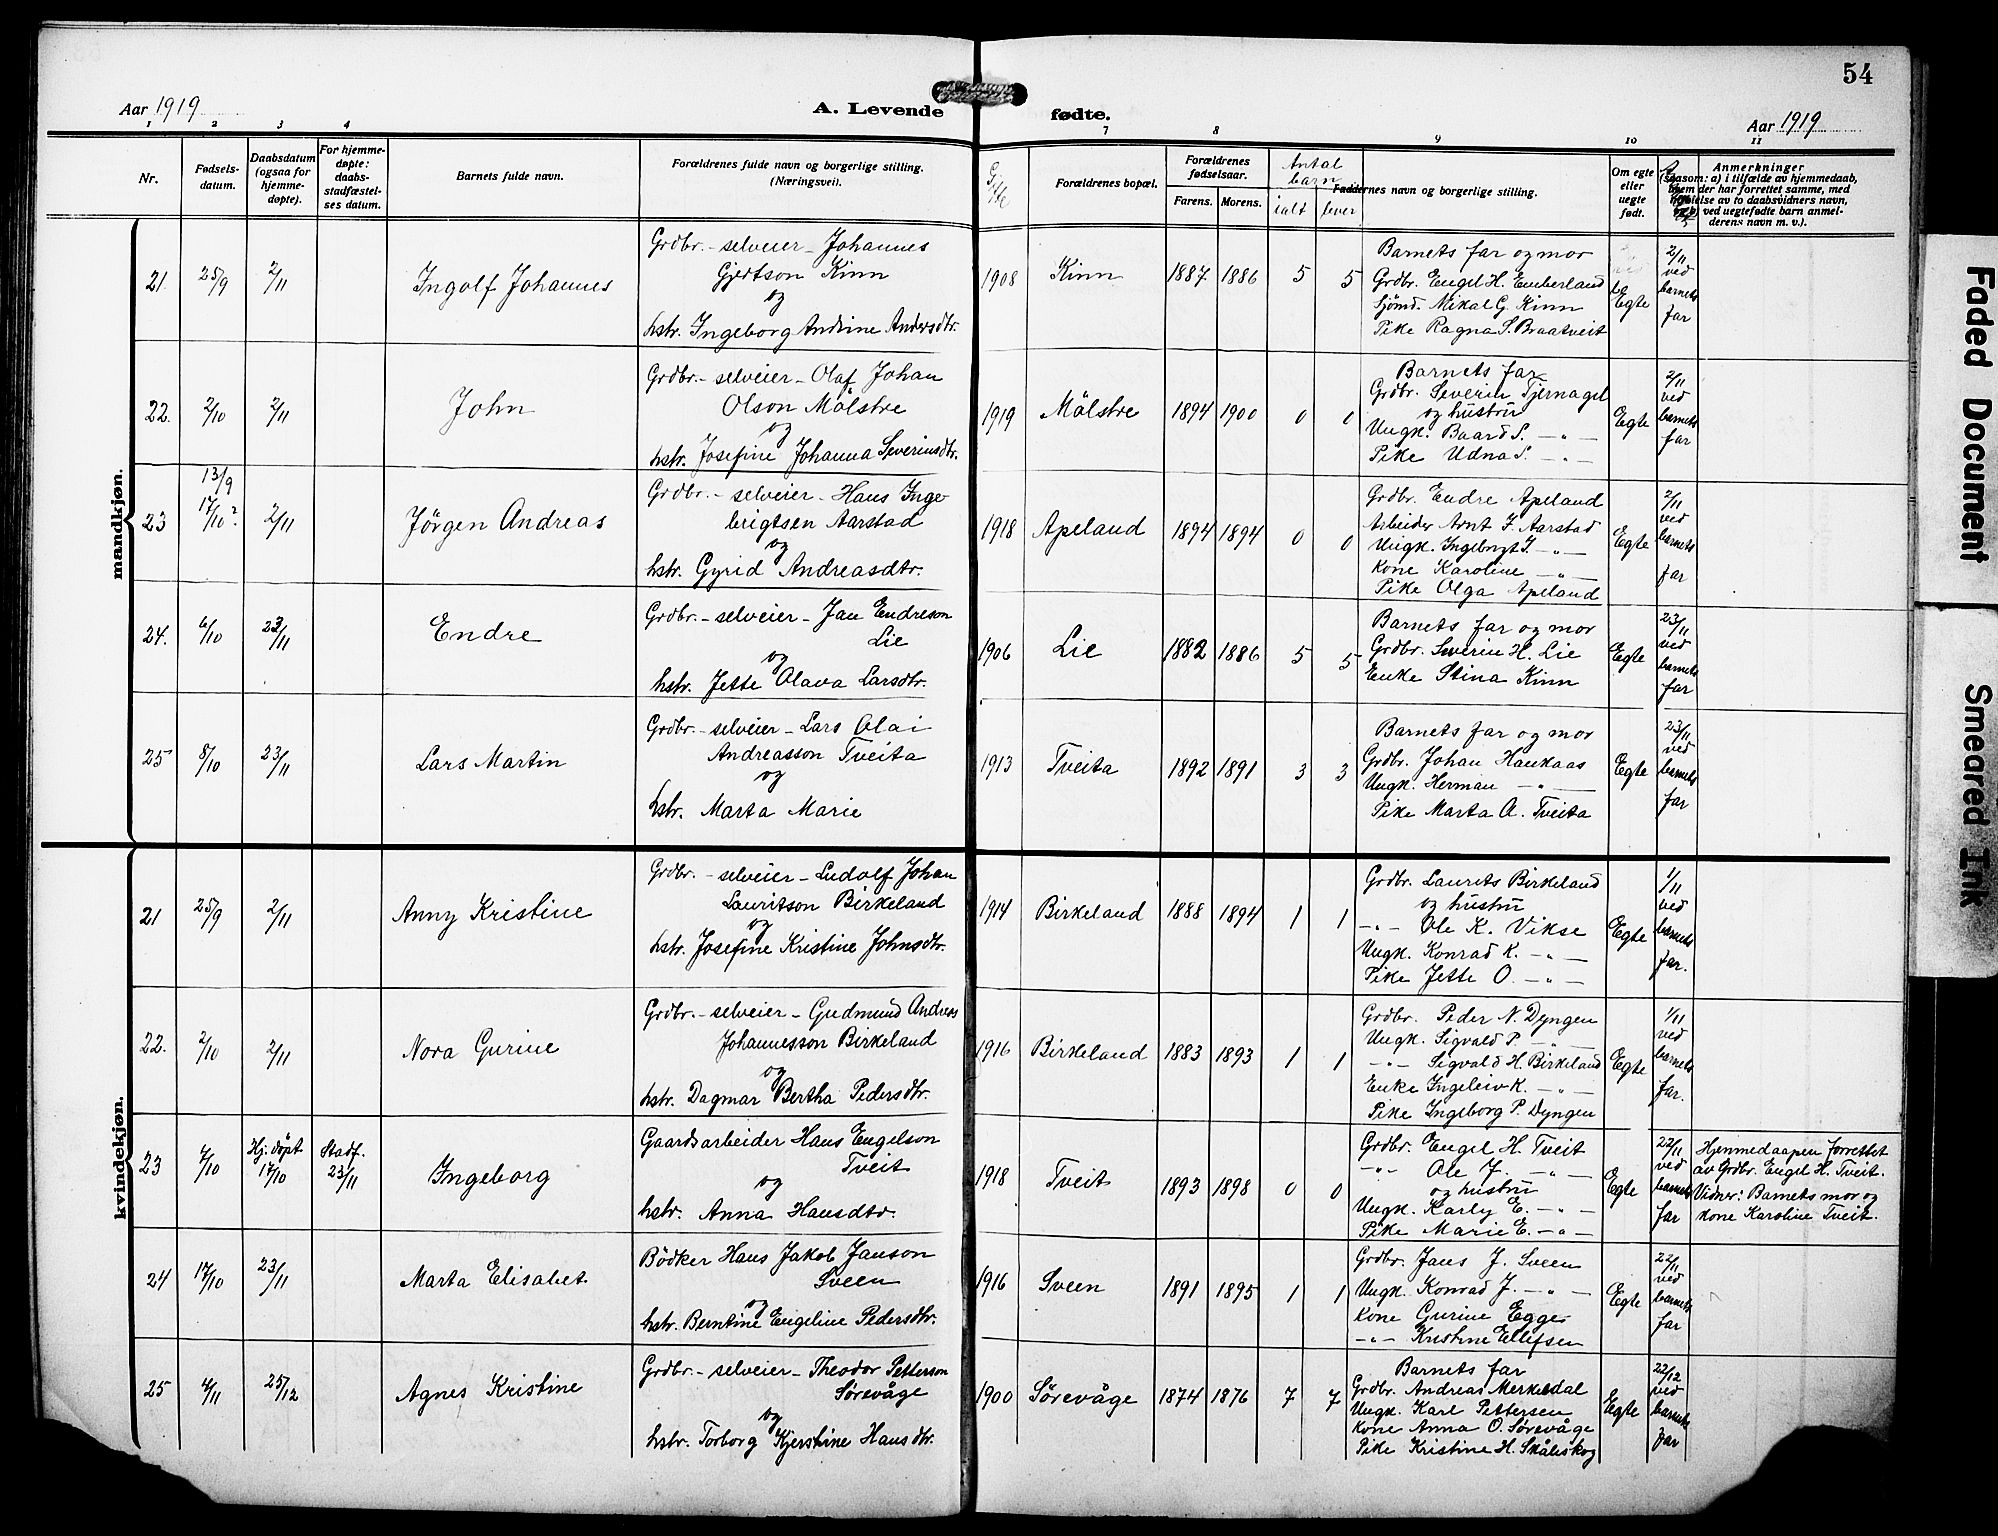 54
Aar 1919
A. Levende
fødte.
Aar 1919
1 2 3 4 7 8 9 10 11
Nr.
Fødsels-
datum.
Daabsdatum
(ogsaa for
hjemme-
døpte).
For hjemme-
døpte:
daabs-
stadfæstel-
ses datum.
Barnets fulde navn.
Forældrenes fulde navn og borgerlige stilling.
(Næringsvei).
Gifte
Forældrenes bopæl.
Forældrenes
fødselsaar.
Farens. Morens.
Antal
barn
ialt lever
Faddernes navn og borgerlige stilling.
Om egte
eller
uegte
født.
Anmerkninger
(saasom: a) i tilfælde av hjemmedaab,
hvem der har forrettet samme, med
av to daabsvidners navn,
ved uegtefødte barn anmel-
derens navn m. v.).
mandkjøn.
21. 25/9 2/11
Ingolf Johannes
Grdbr.- selveier - Johannes
Gjertson Kinn
og
hstr. Ingeborg Andrine Andersdtr.
1908 Kinn 1887. 1886 5 5
Barnets far og mor
Grdbr. Engel H. Emberland
Sjømd. Mikal G. Kinn
Pike Ragna S. Braatveit
Egte
2/11
ved
barnets
far
22. 2/10 2/11
John
Grdbr.- selveier - Olaf Johan
Olson Mölstre
og
hstr. Josefine Johanna Severinsdtr.
1919 Mölstre 1894 1900 0 0
Barnets far
Grdbr. Severin Tjernagel
og hustru
Ungk. Baard S. -"-
Pike Udna S. -"-
Egte
2/11
ved
barnets
far
23 13/9
17/10? 2/11
Jörgen Andreas
Grdbr.- selveier - Hans Inge-
brigtsen Aarstad
og
hstr. Gyrid Andreasdtr.
1918 Apeland 1894 1894 0 0
Grdbr. Endre Apeland
Arbeider Arnt I. Aarstad
Ungk. Ingebrigt I. -"-
Kone Karoline -"-
Pike Olga Apeland
Egte
2/11
ved
barnets
far
24. 6/10 23/11
Endre
Grdbr.- selveier - Jan Endreson
Lie
og
hstr. Jette Olava Larsdtr.
1906 Lie 1882 1886 5 5
Barnets far og mor
Grdbr. Severin H. Lie
Enke Stina Kinn
Egte
23/11
ved
barnets
far
25 8/10 23/11
Lars Martin
Grdbr.- selveier - Lars Olai
Andreasson Tveita
og
hstr. Marta Marie
1913 Tveita 1892 1891 3 3
Barnets far og mor
Grdbr. Johan Haukaas
Ungk. Herman -"-
Pike Marta A. Tveita
Egte
23/11
ved
barnets
far
kvindekjøn.
21 25/9 2/11
Anny Kristine
Grdbr.- selveier - Ludolf Johan
Lauritson Birkeland
og
hstr. Josefine Kristine Johnsdtr.
1914 Birkeland 1888 1894 1 1
Grdbr. Laurits Birkeland
og hustru
-"- Ole K. Vikse
Ungk. Konrad K. -"-
Pike Jette O. -"-
Egte
1/11
ved
barnets
far.
22. 2/10 2/11
Nora Gurine
Grdbr.- selveier - Gudmund Andreas
Johannesson Birkeland
og
hstr. Dagmar Bertha Pedersdtr.
1916 Birkeland 1883 1893 1 1
Grdbr. Peder N. Dyngen
Ungk. Sigvald P. -"-
-"- Sigvald H. Birkeland
Enke Ingeleiv K. -"-
Pike Ingeborg P. Dyngen
Egte
1/11
ved
barnets
far.
23 7/10 Hj.döpt
17/10
Stadf.
23/11
Ingeborg
Gaardsarbeider Hans Engelson
Tveit
og
hstr. Anna Hansdtr.
1918 Tveit 1893 1898 0 0
Grdbr. Engel H. Tveit
-"- Ole J. -"-
og hustru
Ungk. Karly E. -"-
Pike Marie E. -"-
Egte
22/11
ved
barnets
far
Hjemmedaapen forrettet
av Grdbr. Engel H. Tveit.
Vidner: Barnets mor og
kone Karoline Tveit.
24 17/10 23/11
Marta Elisabet
Bödker Hans Jakob Janson
Sveen
og
hstr. Berntine Engeline Pedersdtr.
1916 Sveen 1891 1895 1 1
Grdbr. Jans J. Sveen
Ungk. Konrad J. -"-
Kone Gurine Egge
-"- Kristine Ellefsen
Egte
22/11
ved
barnets
far
25 4/11 25/12
Agnes Kristine
Grdbr.- selveier - Theodor Petterson
Sörevåge
og
hstr. Torborg Kjerstine Hansdtr.
1900 Sörevåge 1874 1876 7 7
Barnets far
Grdbr. Andreas Merkesdal
Ungk. Karl Pettersen
Kone Anna O. Sörevåge
Pike Kristine H. Skåleskog
Egte
22/12
ved
barnets
far
Faded Document
Smeared Ink